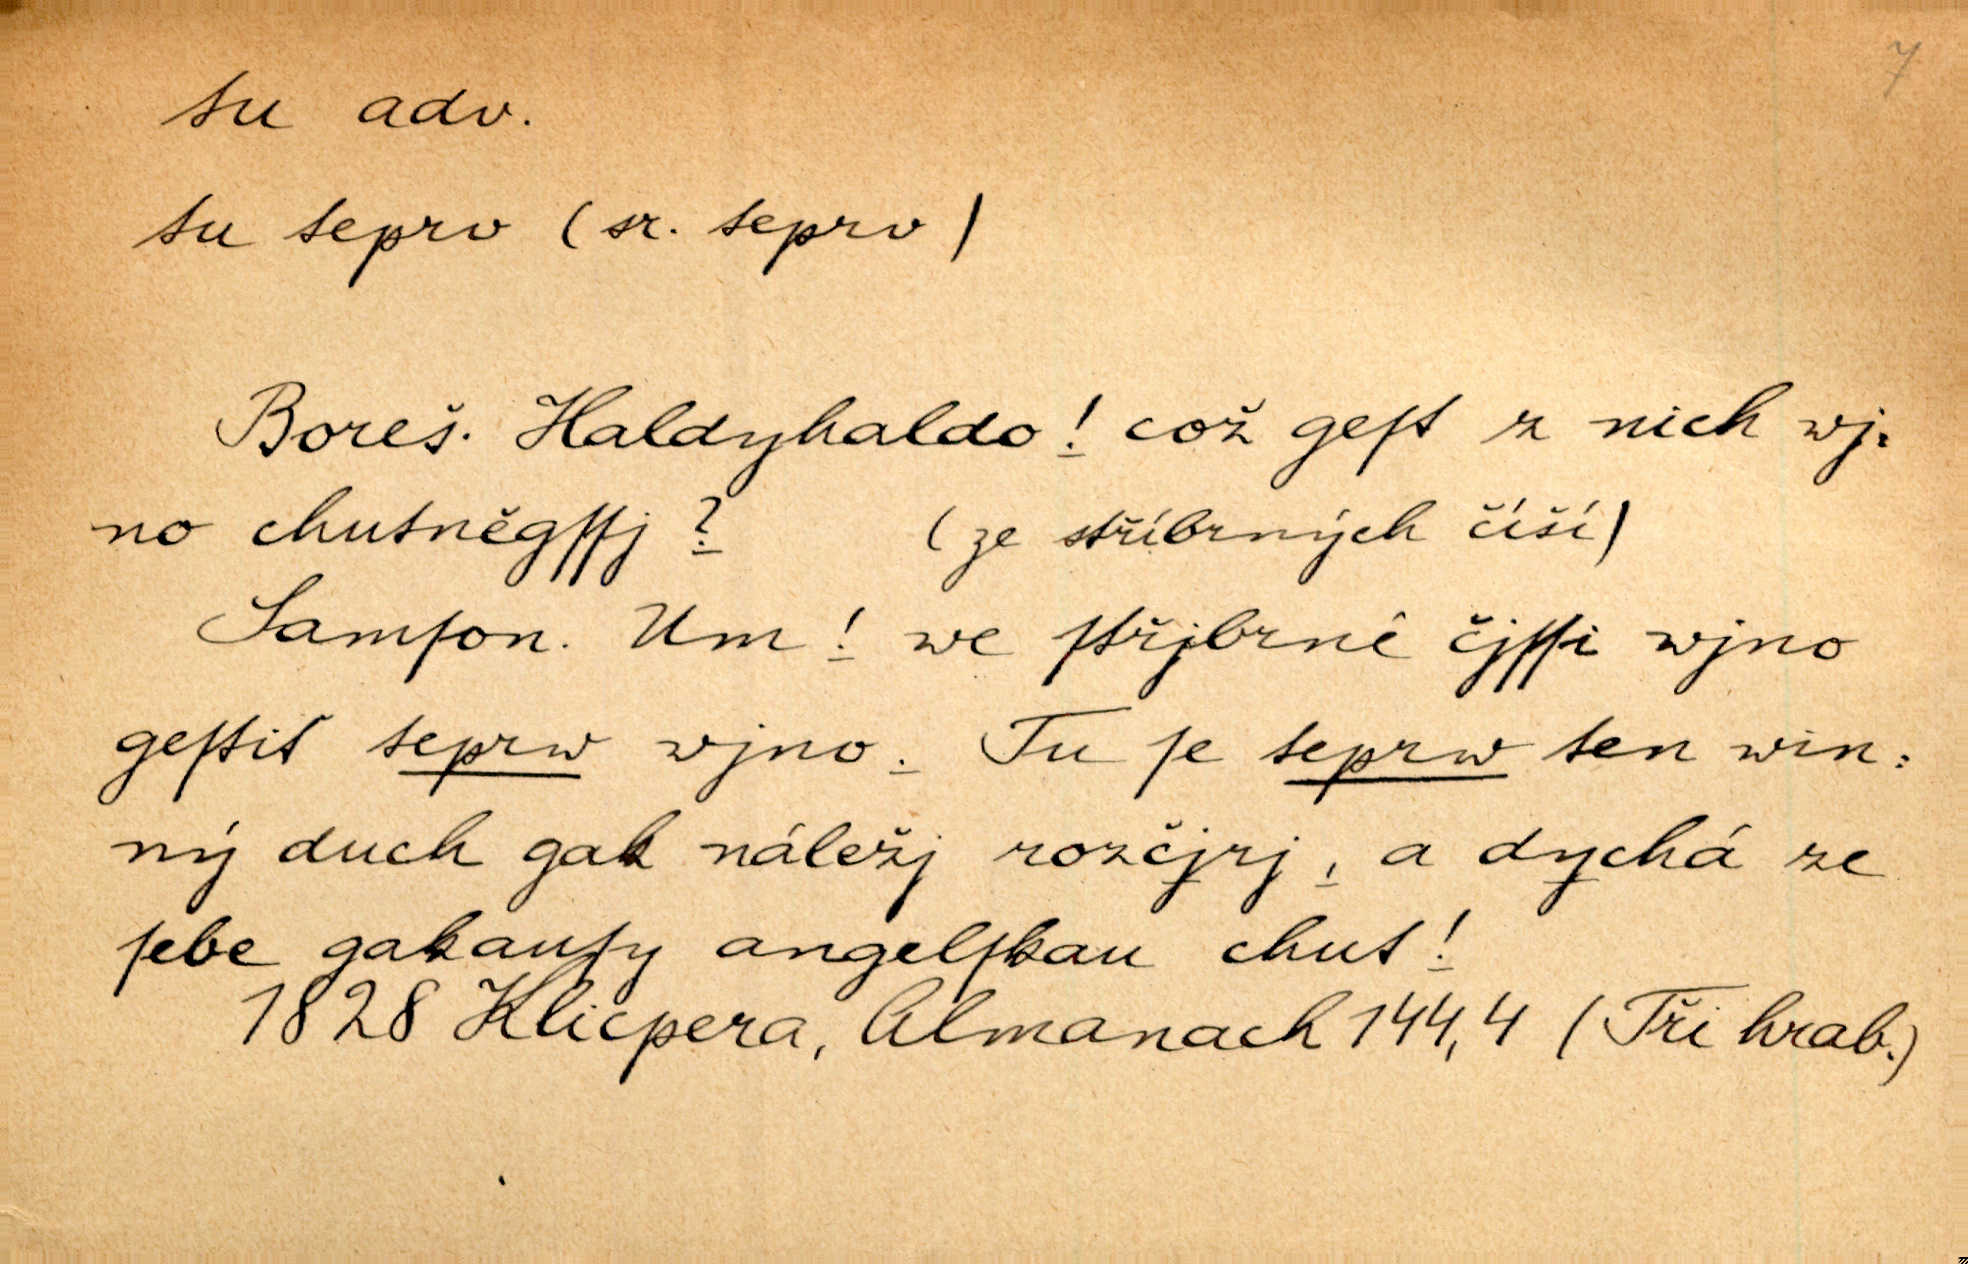 7
tu adv.
tu teprv (sr. teprv)
Boreš. Haldyhaldo! což geſt z nich wj:
no chutněgſſj? (ze stříbrných číší)
Samſon. Um! we ſtřjbrné čjſſi wjno
geſtiť teprw wjno. Tu ſe teprw ten win:
ný duch gak náležj rozčjrj, a dychá ze
ſebe gakauſy angelſkau chut!
1828 Klicpera, Almanach 144,4 (Tři hrab.)